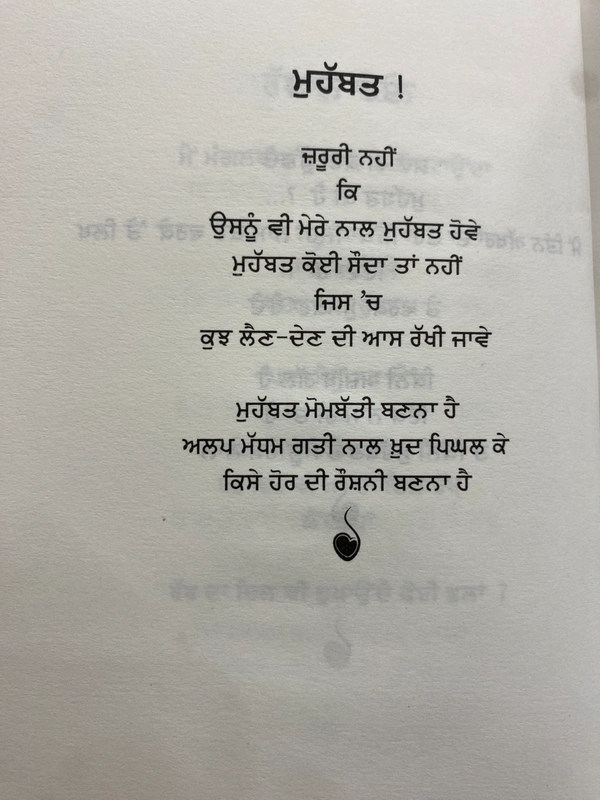 ਮੁਹੱਬਤ !
ਜ਼ਰੂਰੀ ਨਹੀਂ
ਕਿ
ਉਸਨੂੰ ਵੀ ਮੇਰੇ ਨਾਲ ਮੁਹੱਬਤ ਹੋਵੇ
ਮੁਹੱਬਤ ਕੋਈ ਸੌਦਾ ਤਾਂ ਨਹੀਂ
ਜਿਸ ’ਚ
ਕੁਝ ਲੈਣ-ਦੇਣ ਦੀ ਆਸ ਰੱਖੀ ਜਾਵੇ
ਮੁਹੱਬਤ ਮੋਮਬੱਤੀ ਬਣਨਾ ਹੈ
ਅਲਪ ਮੱਧਮ ਗਤੀ ਨਾਲ ਖ਼ੁਦ ਪਿਘਲ ਕੇ
ਕਿਸੇ ਹੋਰ ਦੀ ਰੌਸ਼ਨੀ ਬਣਨਾ ਹੈ